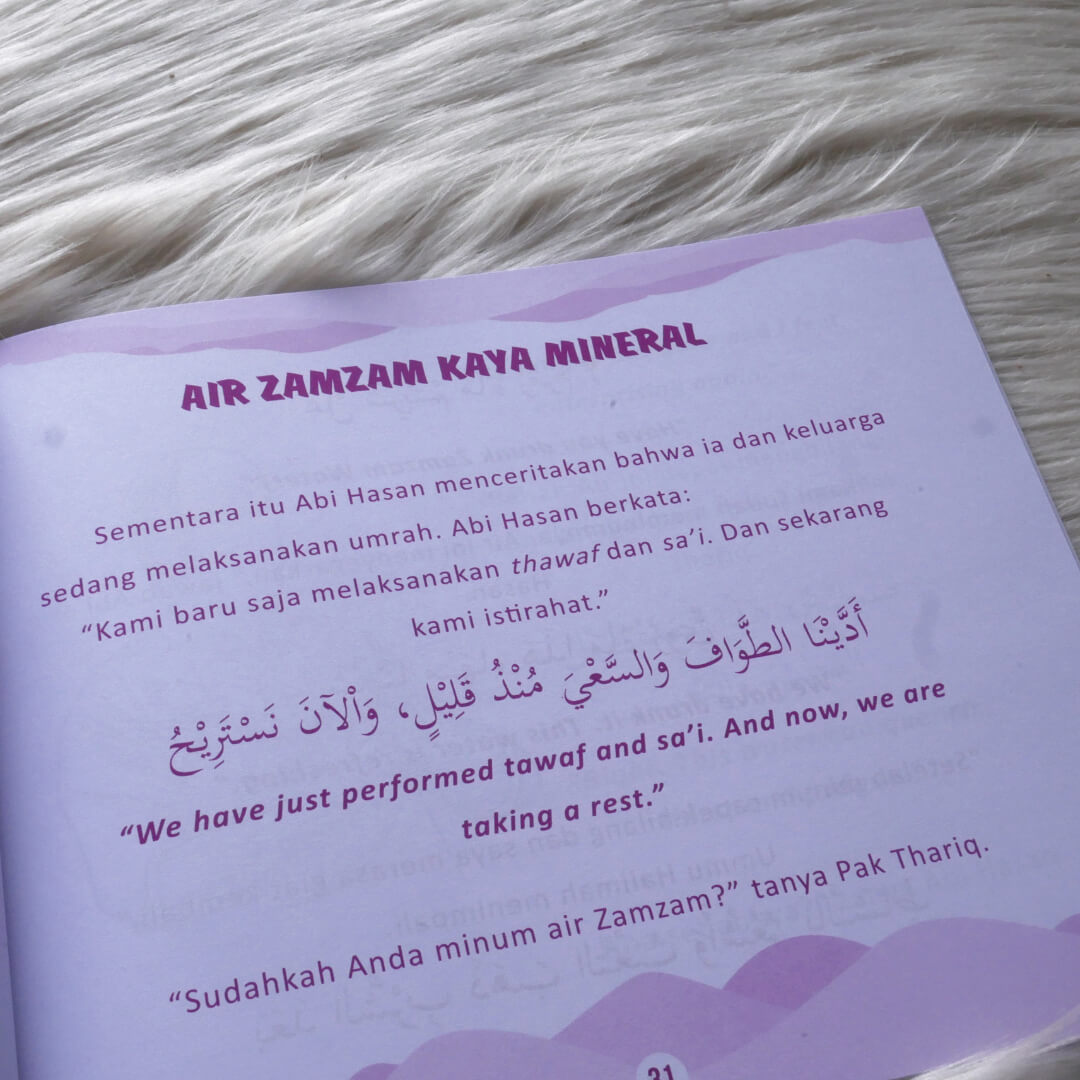 AIR ZAMZAM KAYA MINERAL
Sementara itu Abi Hasan menceritakan bahwa ia dan keluarga
sedang melaksanakan umrah. Abi Hasan berkata:
“Kami baru saja melaksanakan thawaf dan sa’i. Dan sekarang
kami istirahat.”
أَدَّيْنَا الطَّوَافَ وَالسَّعْيَ مُنْذُ قَلِيْلٍ، وَاْلآنَ نَسْتَرِيْحُ
“We have just performed tawaf and sa’i. And now, we are
taking a rest.”
“Sudahkah Anda minum air Zamzam?” tanya Pak Thariq.
31